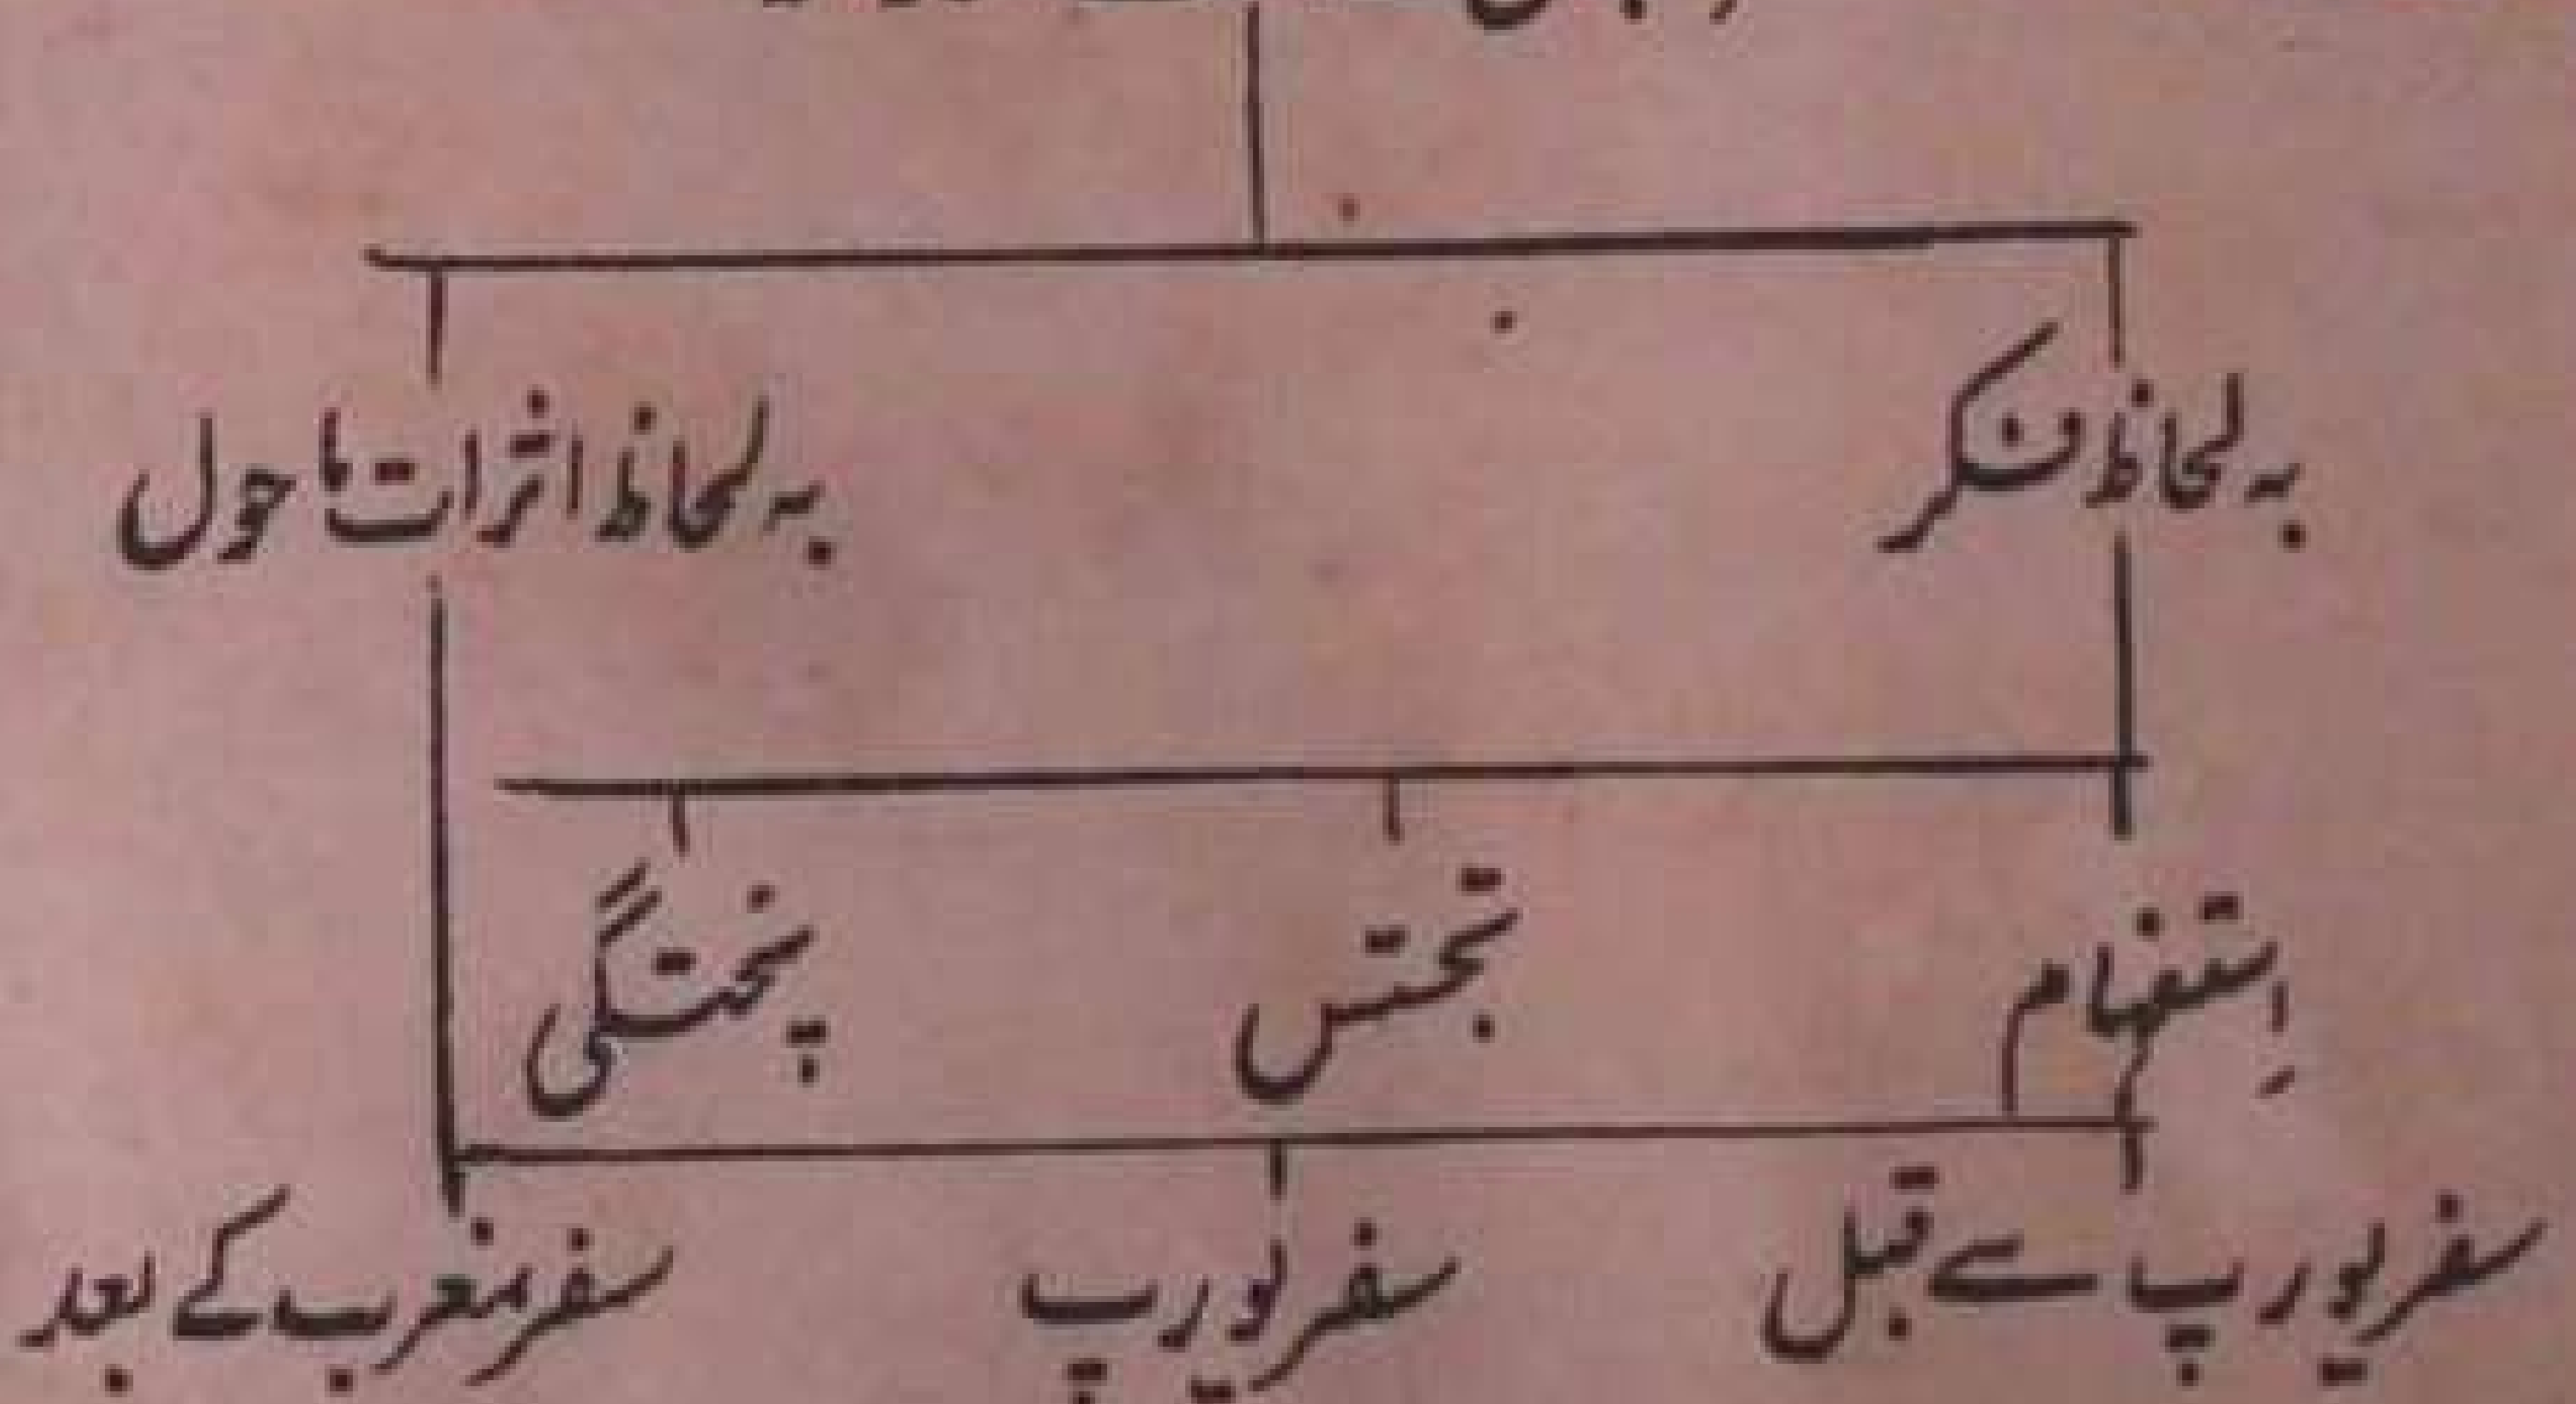 بہ لحاظ فکر بہ لحاظ اثرات ماحول
اِستفہام تجسّس پختگی
سفر یورپ سے قبل سفر یورپ سفر مغرب کے بعد